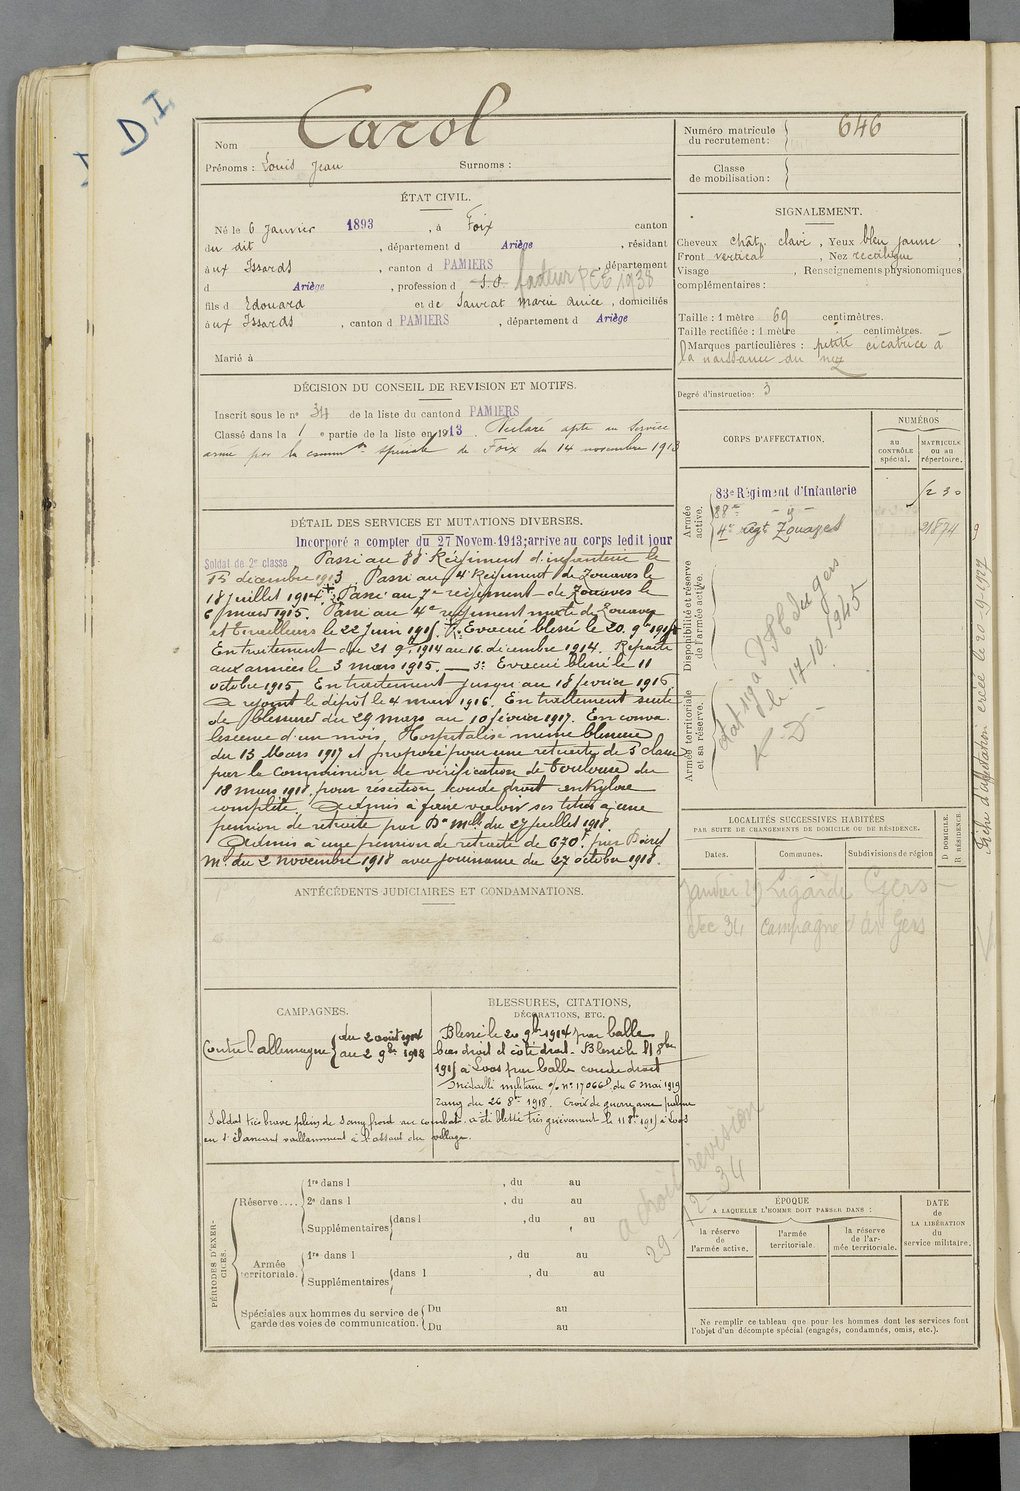 D.I.
Nom Carol
Prénoms : Louis Jean Surnoms :
ÉTAT CIVIL.
Né le 6 Janvier 1893, à Foix canton
du dit, département d Ariège, résidant
à ux Issards, canton d PAMIERS, département
d Ariège, profession d S.P. facteur 1938
fils d Edouard et de Saurat Marie, domiciliés
à ux Issards, canton d PAMIERS, département d Ariège
Marié à
DÉCISION DU CONSEIL DE REVISION ET MOTIFS.
Inscrit sous le n° 34 de la liste du canton d PAMIERS
Classé dans la 1 e partie de la liste en 1913. Déclaré apte au service
armé par la common spéciale de Foix du 14 novembre 1913
DÉTAIL DES SERVICES ET MUTATIONS DIVERSES.
Incorporé a compter du 27 Novem. 1913; arrive au corps ledit jour
Soldat de 2e classe Passé au 88e Régiment d'infanterie le
15 décembre 1913. Passé au 4e Régiment de Zouaves le
18 juillet 1914. Passé au 7e régiment de Zouaves le
6 mars 1915. Passé au 4e régiment mixte de Zouaves
et tirailleurs le 22 Juin 1915. Evacué blessé le 20. 9bre 1914
En traitement du 21 9bre 1914 au 16 décembre 1914. Reparti
aux armées le 3 mars 1915. — 3: Evacué blessé le 11
octobre 1915 En traitement jusqu'au 18 février 1916
A rejoint le dépôt le 4 mars 1916. En traitement suite
de blessures du 29 mars au 10 février 1917. En conva-
lescence d'un mois. Hospitalisé même blessure
du 13 Mars 1917 et proposé pour une retraite de 5e classe
par la Commission de vérification de Toulouse du
18 mars 1918, pour résection coude droit ankylose
complète. Admis à faire valoir ses titres à une
pension de retraite par Don Melle du 27 juillet 1918.
Admis à une pension de retraite de 670 F par Décret
Mel du 2 novembre 1918 avec jouissance du 27 octobre 1918.
ANTÉCÉDENTS JUDICIAIRES ET CONDAMNATIONS.
CAMPAGNES.
Contre l'allemagne { du 2 août 1914
au 2 9bre 1918
BLESSURES, CITATIONS,
DÉCORATIONS, ETC.
Blessé le 20 9bre 1914 par balle
bras droit et côté droit. Blessé le 11 8bre
1915 à Loos par balle coude droit
Médaille militaire o/o n° 17066D du 6 mai 1919
rang du 26 8bre 1918. Croix de guerre avec palme
Soldat très brave plein de sang froid au combat. a été blessé très grièvement le 11 8bre 1915 à Loos
en s'élançant vaillamment à l'assaut du village.
PÉRIODES D'EXERCICES.
Réserve.... 1re dans l , du au
2e dans l , du au
Supplémentaires dans l , du au
Armée territoriale. 1re dans l , du au
Supplémentaires dans l , du au
Spéciales aux hommes du service de garde des voies de communication. Du au
Du au
a droit révision
29-12-34
Numéro matricule du recrutement : 646
Classe de mobilisation :
SIGNALEMENT.
Cheveux chât. clair, Yeux bleu jaune,
Front vertical, Nez rectiligne,
Visage , Renseignements physionomiques
complémentaires :
Taille : 1 mètre 69 centimètres.
Taille rectifiée : 1 mètre centimètres.
Marques particulières : petite cicatrice à
la naissance du nez
Degré d'instruction : 3
CORPS D'AFFECTATION.
NUMÉROS
au CONTRÔLE spécial.
MATRICULE ou au répertoire.
Armée active.
83e Régiment d'Infanterie
88e - y -
4e régt Zouaves 21874
Disponibilité et réserve de l'armée active.
Armée territoriale et sa réserve.
le 17-10.1945
Fiche d'affectation créée le 20-9-1927
LOCALITÉS SUCCESSIVES HABITÉES
PAR SUITE DE CHANGEMENTS DE DOMICILE OU DE RÉSIDENCE.
Dates. Communes. Subdivisions de région
D DOMICILE. R RÉSIDENCE.
Janvier 29 Ligarde Gers
Dec 34 Campagne d'Ar Gers
ÉPOQUE
A LAQUELLE L'HOMME DOIT PASSER DANS :
la réserve de l'armée active.
l'armée territoriale.
la réserve de l'armée territoriale.
DATE de LA LIBÉRATION du service militaire.
Ne remplir ce tableau que pour les hommes dont les services font
l'objet d'un décompte spécial (engagés, condamnés, omis, etc.).